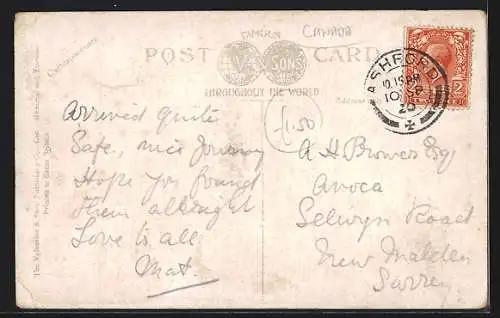 FAMOUS
CANADA
POST CARD
V & SONS
THROUGHOUT THE WORLD
Correspondence
Address
ASHFORD
9.15 PM
10 SP
25
1.50
Arrived quite
Safe, nice journey
Hope you found
them allright
Love to all
Mat.
A H Browes Esq
Avoca
Selwyn Road
New Malden
Surrey